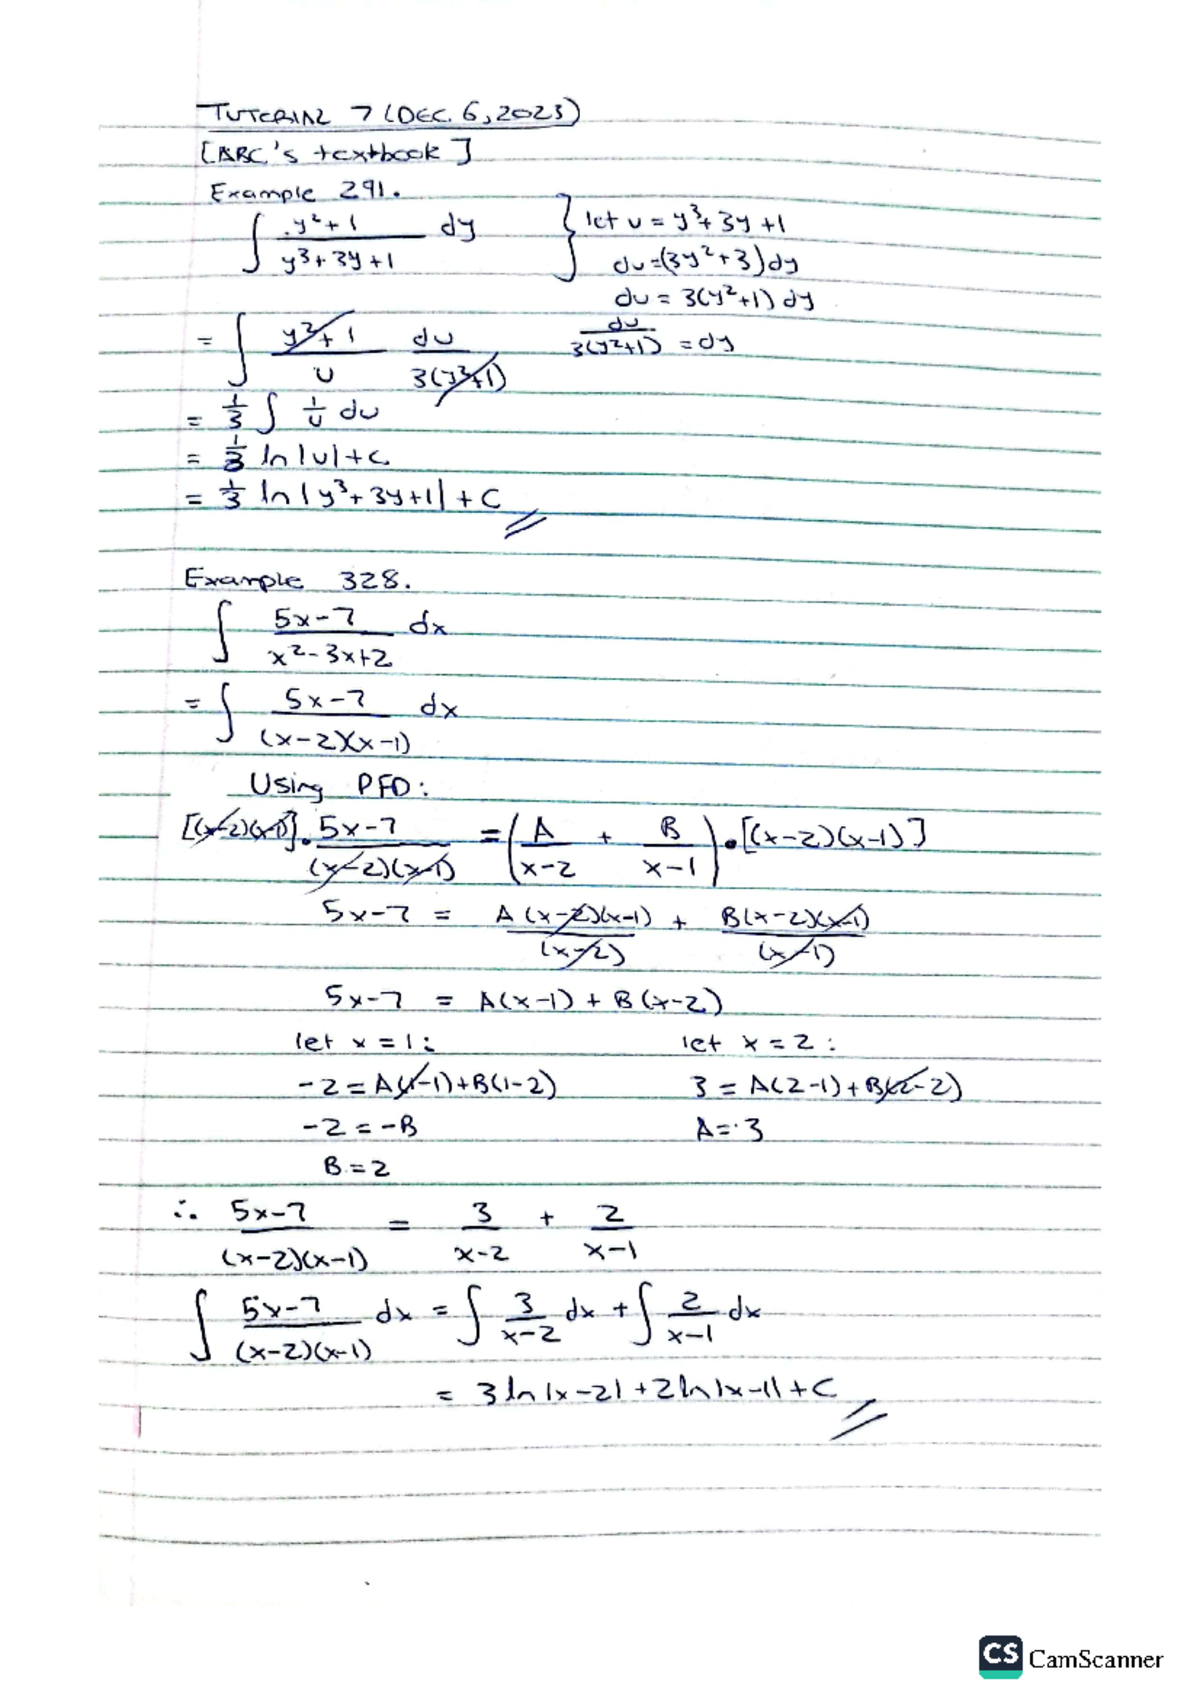 TUTORIAL 7 (DEC. 6, 2023)
[ABC's textbook]
Example 291.
∫ (y²+1)/(y³+3y+1) dy } let u = y³+3y+1
du=(3y²+3)dy
du = 3(y²+1)dy
= ∫ (y²+1)/u du/3(y²+1) du/3(y²+1) = dy
= 1/3 ∫ 1/u du
= 1/3 ln|u|+c
= 1/3 ln|y³+3y+1| + C
Example 328.
∫ (5x-7)/(x²-3x+2) dx
= ∫ (5x-7)/((x-2)(x-1)) dx
Using PFD:
[(x-2)(x-1)] · (5x-7)/((x-2)(x-1)) = (A/(x-2) + B/(x-1)) · [(x-2)(x-1)]
5x-7 = A(x-2)(x-1)/(x-2) + B(x-2)(x-1)/(x-1)
5x-7 = A(x-1) + B(x-2)
let x = 1: let x = 2:
-2 = A(1-1)+B(1-2) 3 = A(2-1)+B(2-2)
-2 = -B A = 3
B = 2
∴ (5x-7)/((x-2)(x-1)) = 3/(x-2) + 2/(x-1)
∫ (5x-7)/((x-2)(x-1)) dx = ∫ 3/(x-2) dx + ∫ 2/(x-1) dx
= 3ln|x-2|+2ln|x-1|+C
CS CamScanner